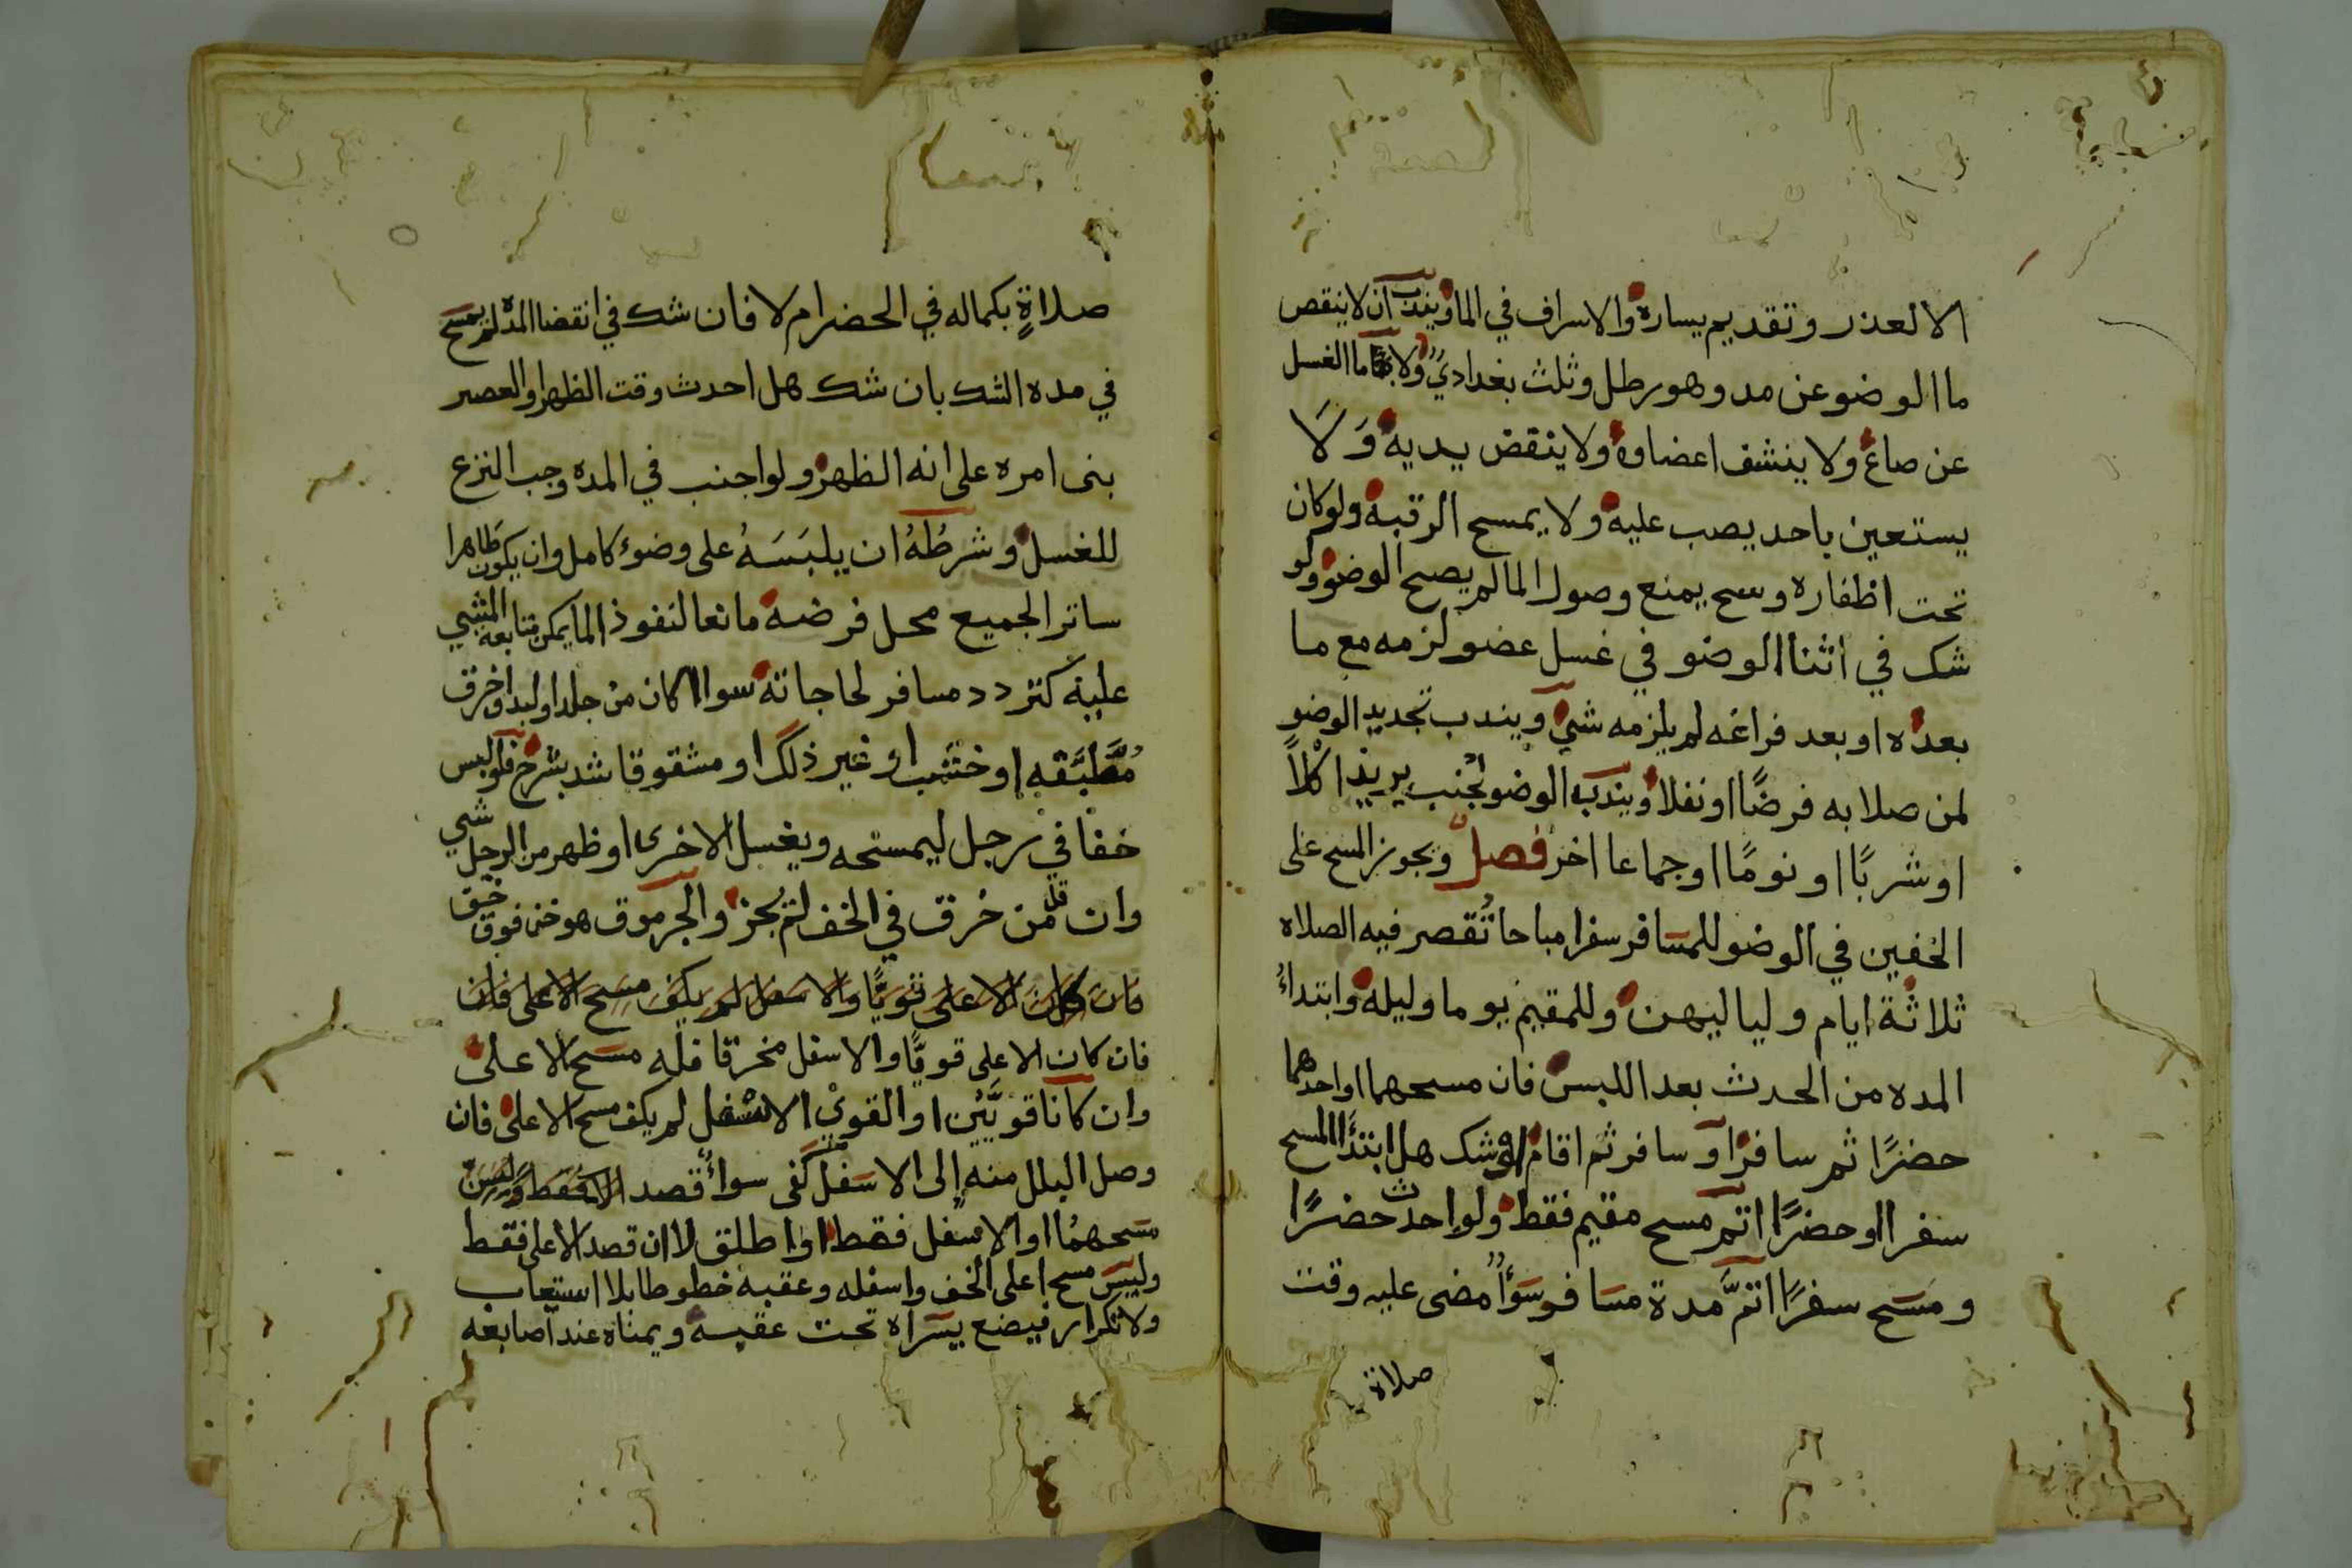 الا لعذر وتقديم يساره والاسراف في الما ويندب ان لا ينقص
ما الوضو عن مد وهو رطل وثلث بغدادي ولا ما الغسل
عن صاع ولا ينشف اعضاوه ولا ينقض يديه وَلَا
يستعين باحد يصب عليه ولا يمسح الرقبة ولو كان
تحت اظفاره وسح يمنع وصول الما لم يصح الوضو ولو
شك في اثنا الوضو في غسل عضو لزمه مع ما
بعده او بعد فراغه لم يلزمه شي ويندب تجديد الوضو
لمن صلا به فرضًا او نفلا ويندب الوضو لجنب يريد اكلًا
او شربًا او نومًا او جماعا اخر فصل ويجوز المسح على
الخفين في الوضو للمسافر سفرا مباحا تُقصر فيه الصلاه
ثلاثة ايام ولياليهن وللمقيم يوما وليله وابتداءُ
المده من الحدث بعد اللبس فان مسحهما او احدهما
حضرًا ثم سافر او سافر ثم اقام او شك هل ابتدأ المسح
سفرا او حضرًا اتم مسح مقيم فقط ولو احدث حضرًا
ومَسَح سفرًا اتمَّ مدة مسافر سَوَأٌ مضى عليه وقت
صلاة
صلاةٍ بكماله في الحضر ام لا فان شك في انقضا المده لم يمسح
في مده الشك بان شك هل احدث وقت الظهر او العصر
بنى امره على انه الظهر ولو اجنب في المده وجب النزع
للغسل وشرطُهُ ان يلبَسَهُ على وضوء كامل وان يكون طاهرا
ساتر الجميع محل فرضه مانعا لنفوذ الما يمكن متابعة المشي
عليه كتردد مسافر لحاجاته سوا كان من جلد او لبد او خرق
مُطَبَّقه او خشب او غير ذلك او مشقوقا شد بشرج فلو لبس
خفا في رجل ليمسحه ويغسل الاخرى او ظهر من الرجل شي
وان قل من خرق في الخف لم يجز والجرموق هو خف فوق خف
فان كان الاعلى قويًا والاسفل لم يكف مسح الاعلى فان
فان كان الاعلى قويًا والاسفل مخرقا فله مسح الاعلى
وان كانا قويَّيْن او القوي الاسفل لم يكف مسح الاعلى فان
وصل البلل منه الى الاسفل كفى سوأ قصد فقط
مسحهمُا او الاسفل فقط او اطلق لا ان قصد الاعلى فقط
وليس مسح اعلى الخف واسفله وعقبه خطوطا بلا استيعاب
ولا تكرار فيضع يسراه تحت عقبه ويمناه عند اصابعه